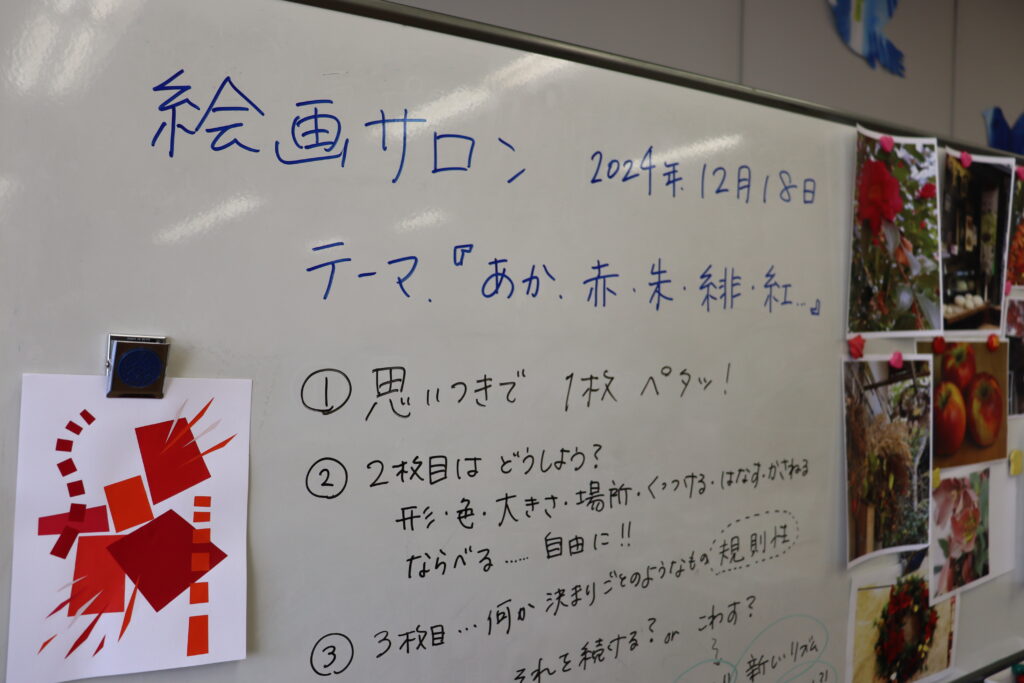 絵画サロン
2024年.12月18日
テーマ.『あか.赤・朱・緋・紅...』
① 思いつきで 1枚 ペタッ!
② 2枚目は どうしよう?
形・色・大きさ・場所・くっつける・はなす・かさねる
ならべる...... 自由に!!
③ 3枚目...何か 決まりごとのようなもの 規則性
それを続ける? or こわす?
新しいリズム